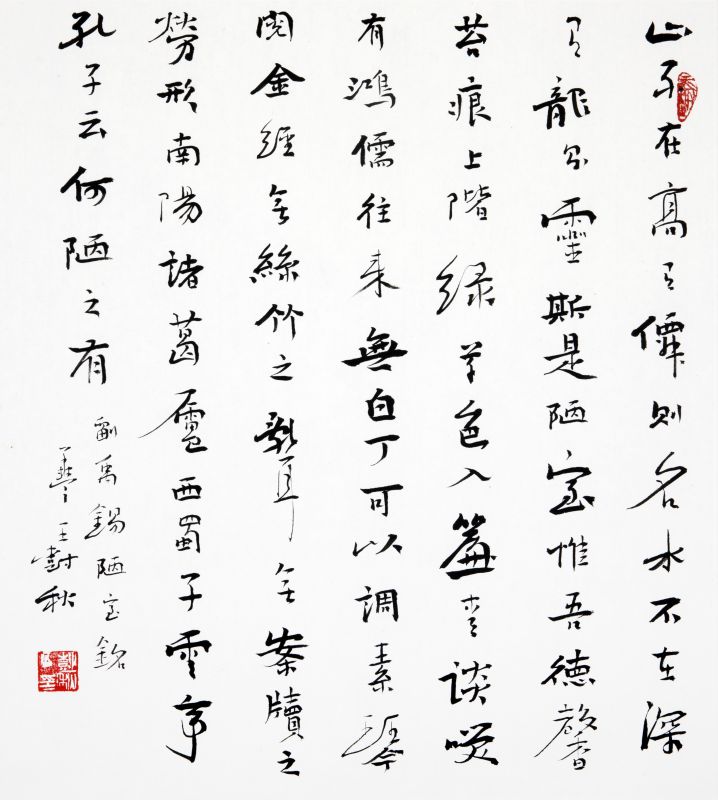 山不在高有僊則名水不在深
有龍則靈斯是陋室惟吾德馨
苔痕上階緑草色入簾青談咲
有鴻儒往來無白丁可以調素琴
閱金經無絲竹之亂耳無案牘之
勞形南陽諸葛廬西蜀子雲亭
孔子云何陋之有
劉禹錫陋室銘
王樹秋